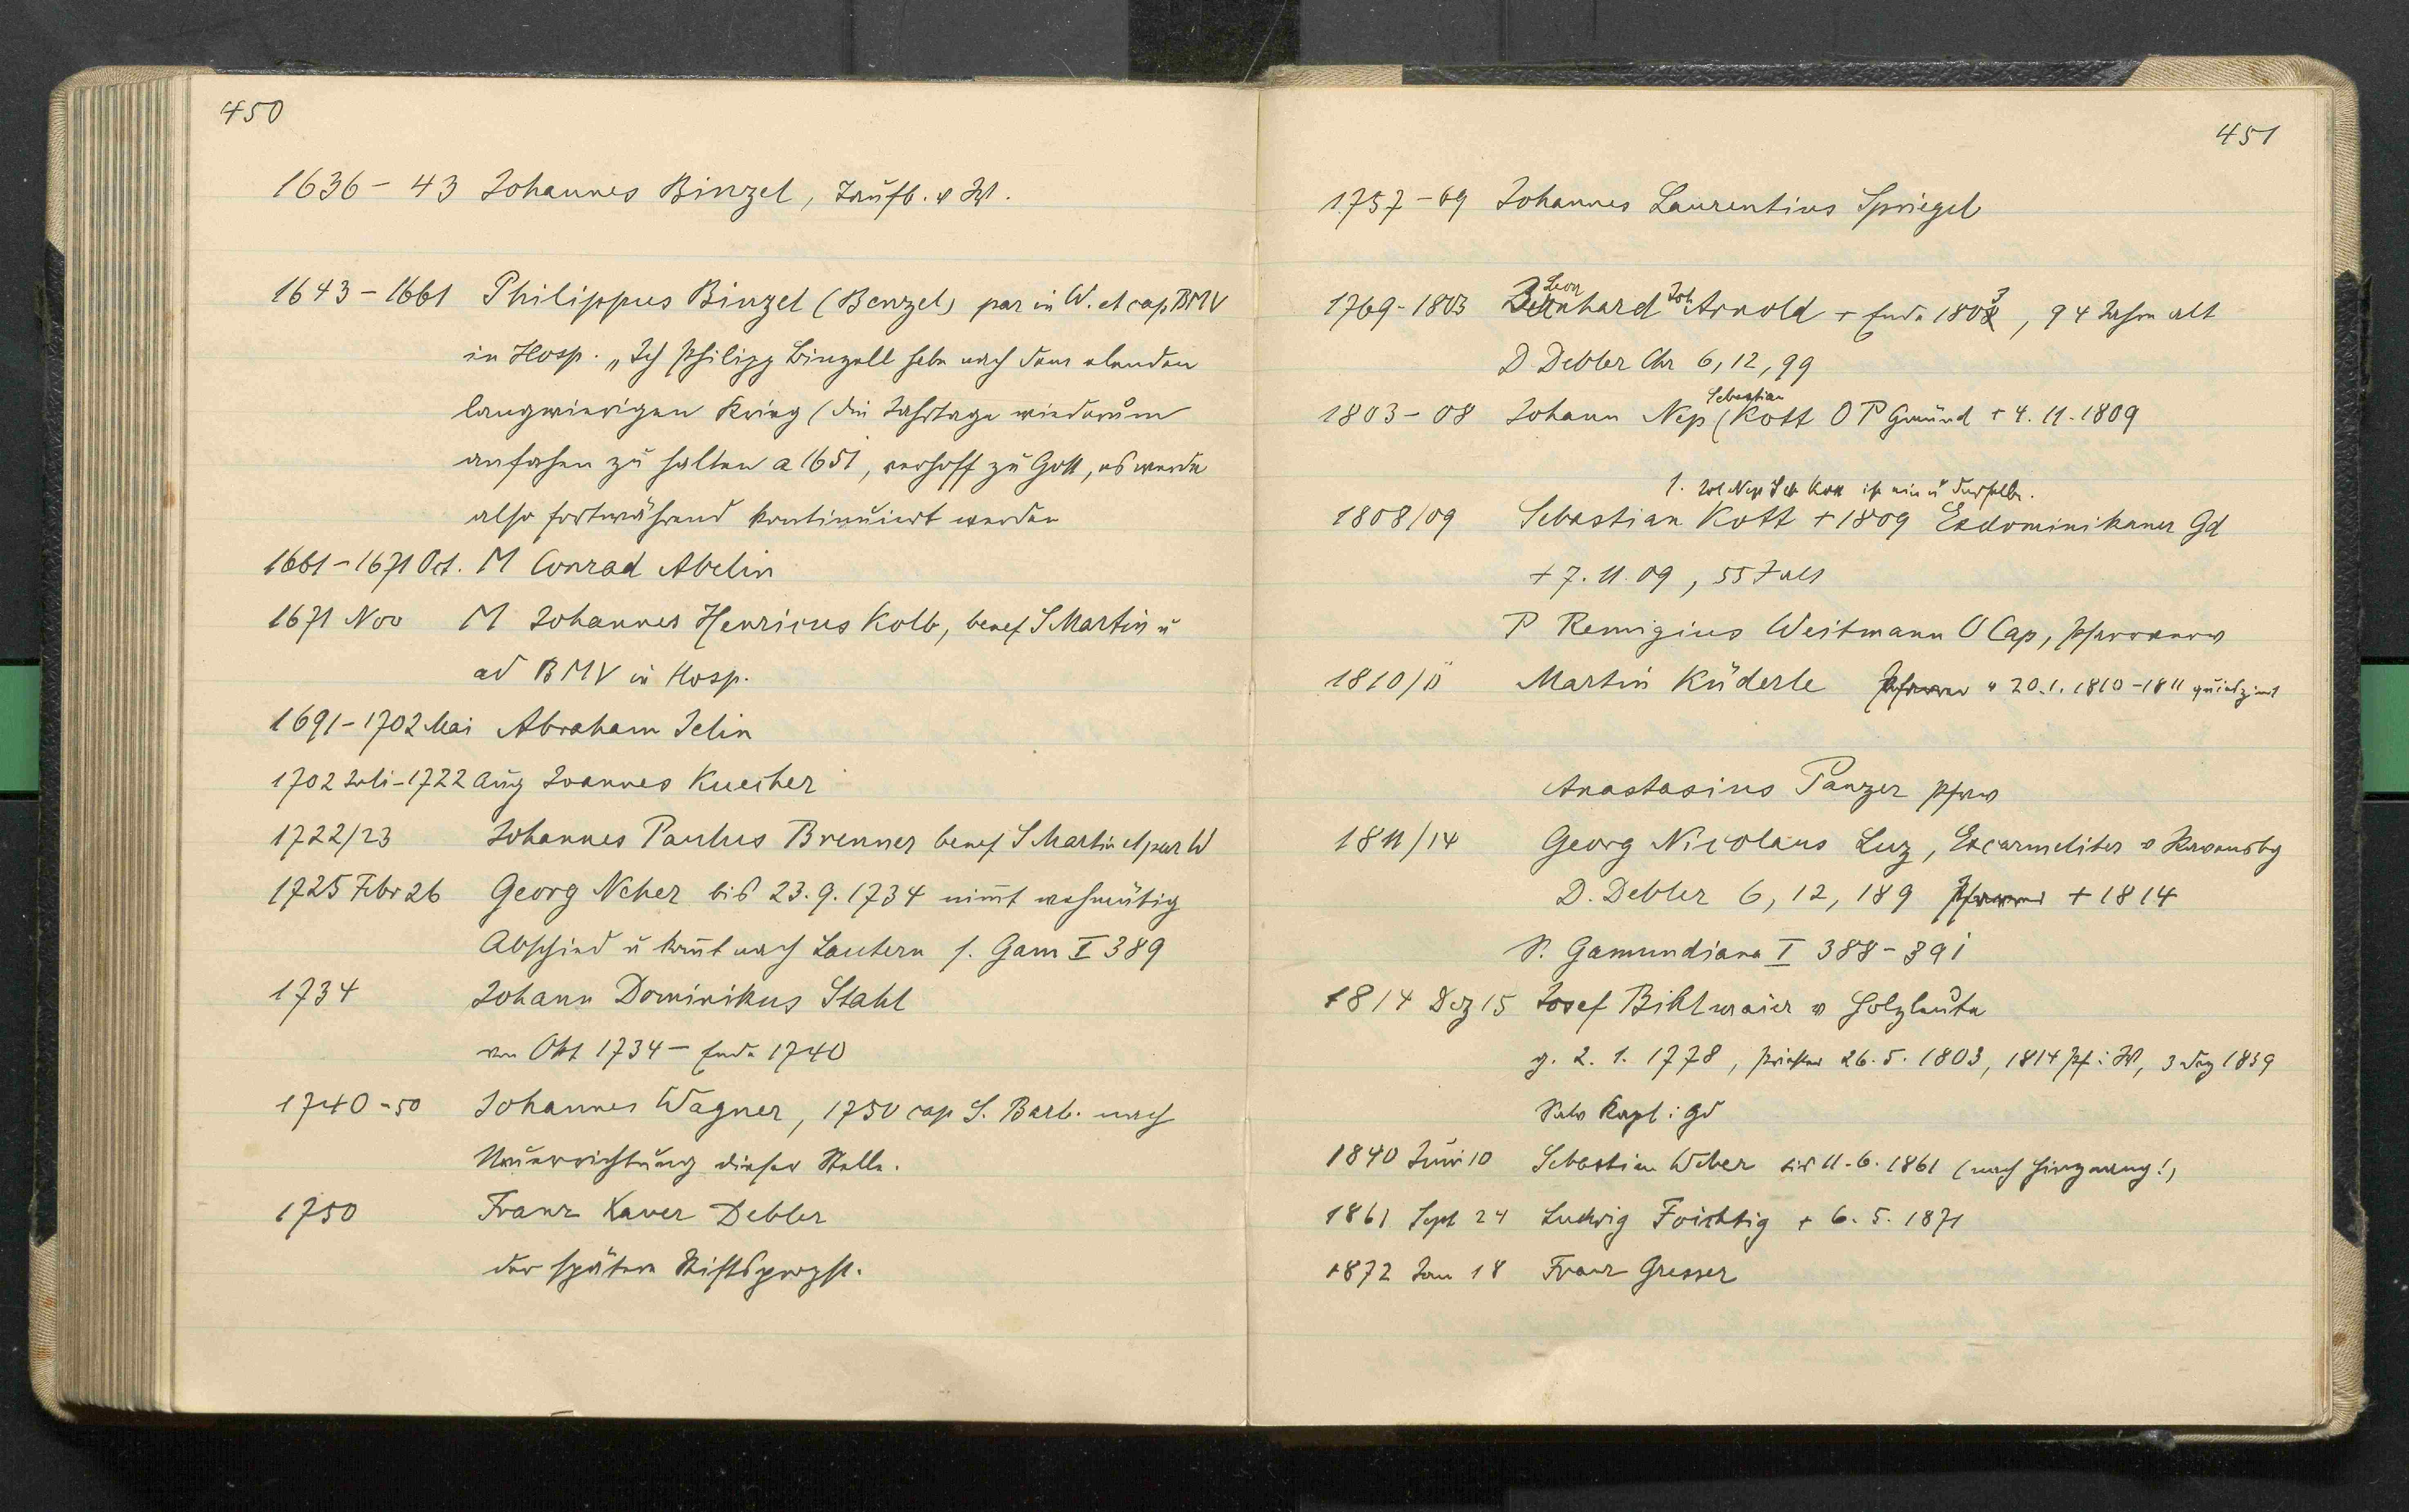 450
1636-43 Johannes Binzel, Taufb. v W.
1643-1661 Philippus Binzel (Benzel) par in W. et cap BMV
in Hosp. „Ich Philipp Binzell habe nach dem elenden
langwierigen Krieg (die Jahrtage wiederum
anfahen zu halten a 1651, verhoff zu Gott, es werde
also fortwährend kontinuiert werden
1661-1671 Oct. M Conrad Abelin
1671 Nov M Johannes Henricus Kolb, benef S Martin u
ad BMV in Hosp.
1691-1702 Mai Abraham Jelin
1702 Juli-1722 Aug Joannes Kuecher
1722/23 Johannes Paulus Brenner benef S Martin et par W
1725 Febr 26 Georg Neher bis 23.9.1734 nimt wehmütig
Abschied u komt nach Lautern s. Gam I 389
1734 Johann Dominikus Stahl
von Okt 1734 - Ende 1740
1740-50 Johannes Wagner, 1750 cap S. Barb. nach
Neuerrichtung dieser Stelle.
1750 Franz Xaver Debler
der spätere Stiftspropst.
451
1757-69 Johannes Laurentius Spriegel
1769-1803 Leonhard Joh Arnold + Ende 1803, 94 Jahre alt
D. Debler Chr 6, 12, 99
1803-08 Johann Nep (Sebastian Kott O P Gmünd + 4.11.1809
1. Joh Nep Seb Kott ist ein u derselbe.
1808/09 Sebastian Kott + 1809 Exdominikaner Gd
+ 7.11.09, 55 J alt
P Remigius Weitmann O Cap, Pfarrverw
1810/11 Martin Küderle Pfarrer v 20.1.1810-1811 quiesziert
Anastasius Panzer Pfrv
1811/14 Georg Nicolaus Luz, Excarmeliter v Ravensbg
D. Debler 6, 12, 189 Pfarrer + 1814
S. Gamundiana I 388-391
1814 Dez 15 Josef Bihlmaier v Holzleute
g. 2.1.1778, Priester 26.5.1803, 1814 Pf i W, 3 Dez 1839
Kapl i Gd
1840 Juni 10 Sebastian Weber bis 11.6.1861 (nach !)
1861 Sept 24 Ludwig Foichtig + 6.5.1871
1872 Jan 18 Franz Gresser